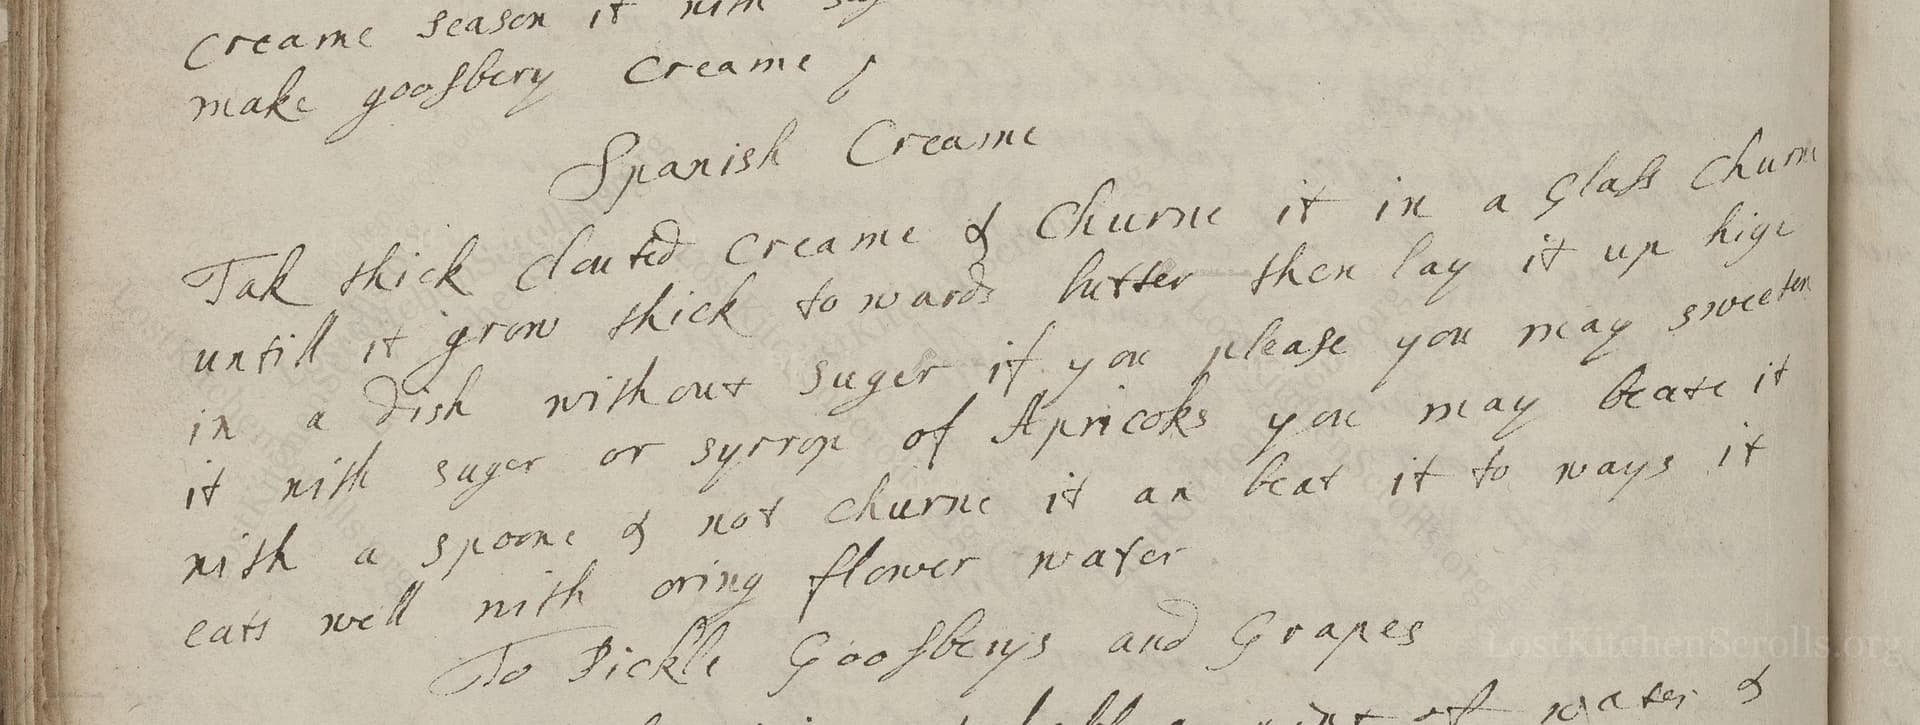 Creame season it with
make goosbery Creame
Spanish Creame
Tak thick Clouted Creame & Churne it in a Glass Churne
untill it grow thick towards butter then lay it up hige
in a Dish without suger if you please you may sweeten
it with suger or syrrop of Apricoks you may beate it
with a spoone & not Churne it an beat it to ways it
eats well with oring flower water
To Pickle Goosberys and Grapes
of water &
LostKitchenScrolls.org